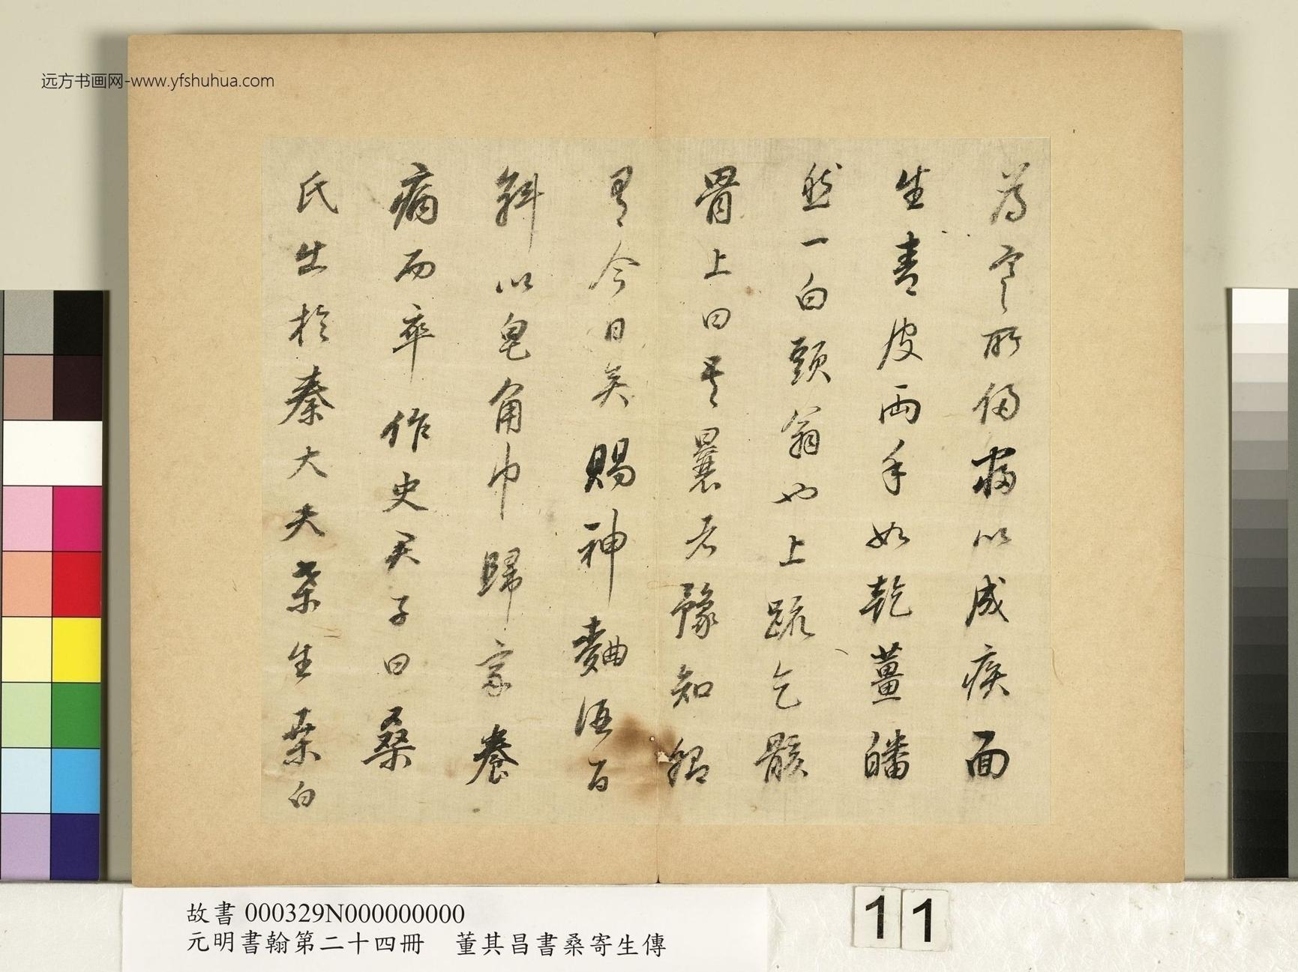 远方书画网-www.yfshuhua.com
為寒所侵癖以成疾面
生青皮兩手如乾薑皤
然一白頭翁也上疏乞骸
骨上曰吾曩者豫知卿
有今日矣賜神麯酒百
斛以皂角巾歸家養
病而卒作史君子曰桑
氏出於秦大夫桑生桑白
故書 000329N000000000
元明書翰第二十四冊 董其昌書桑寄生傳
11